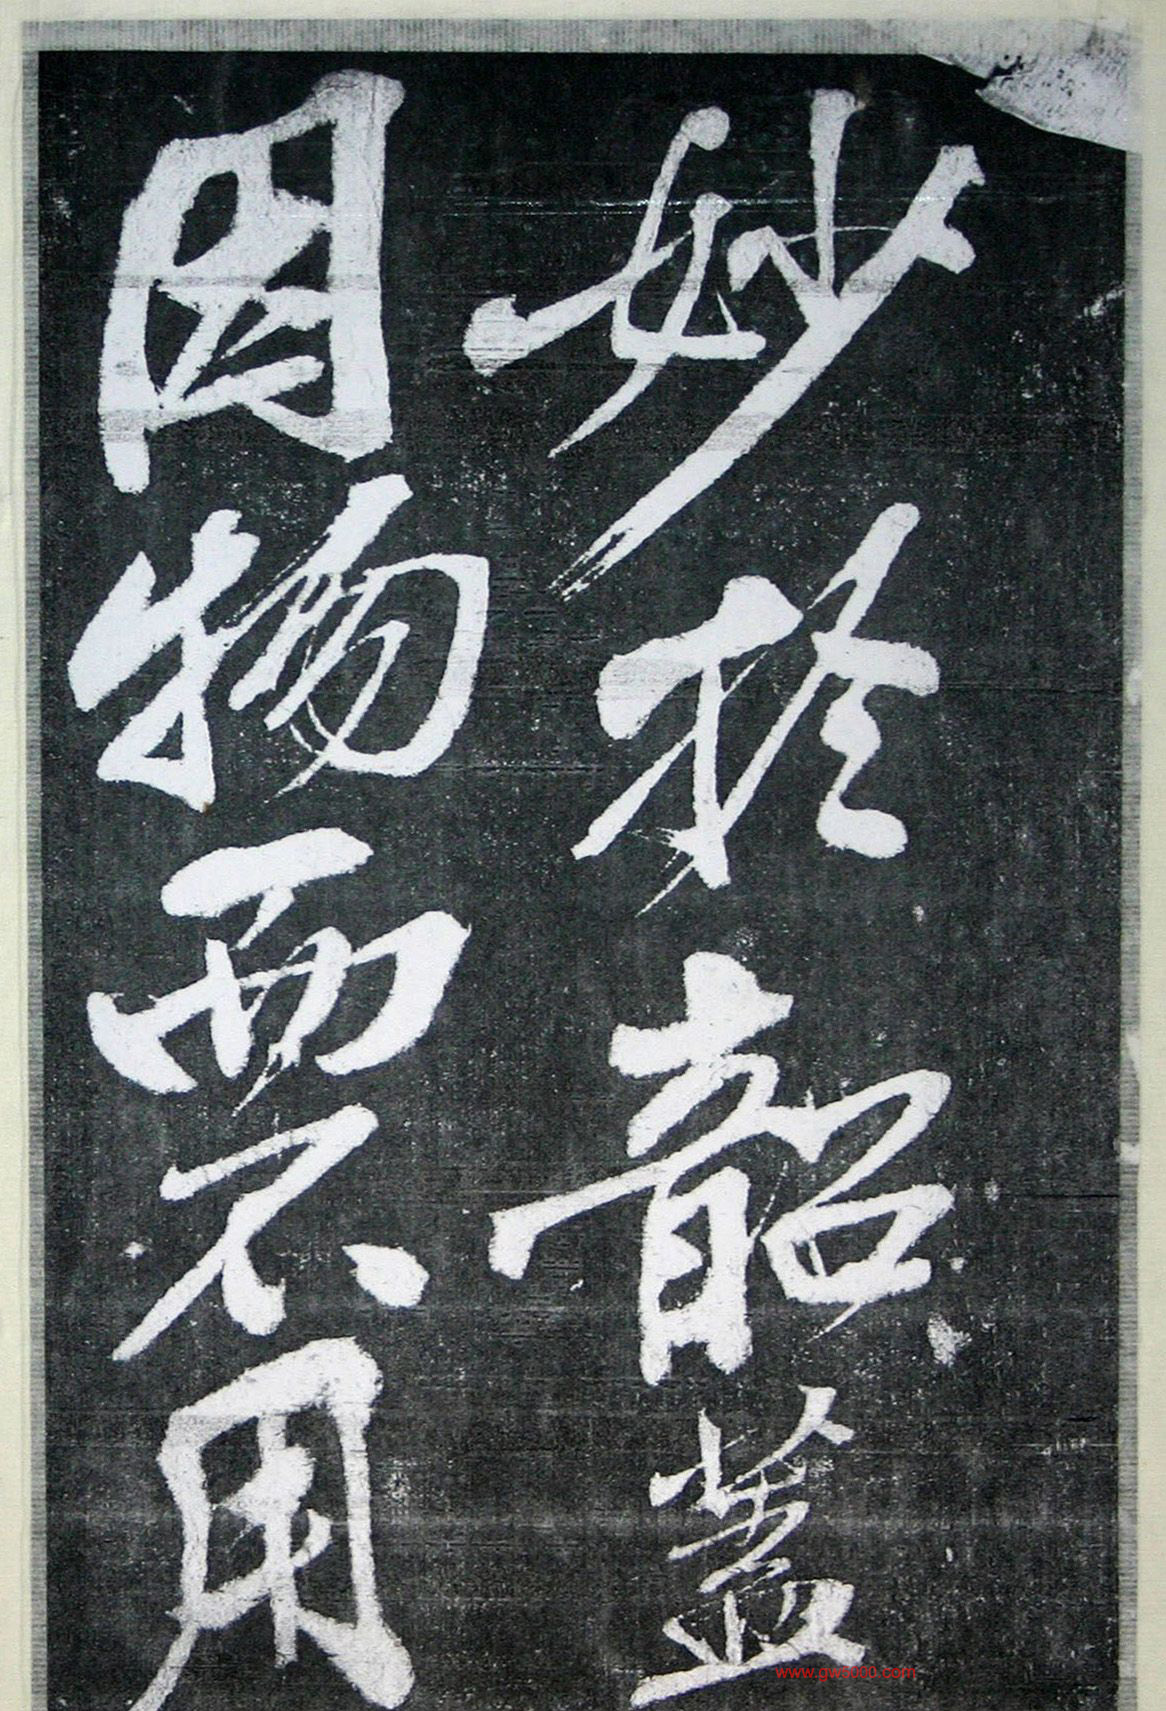 妙於韶盖
因物而不用
www.gw5000.com